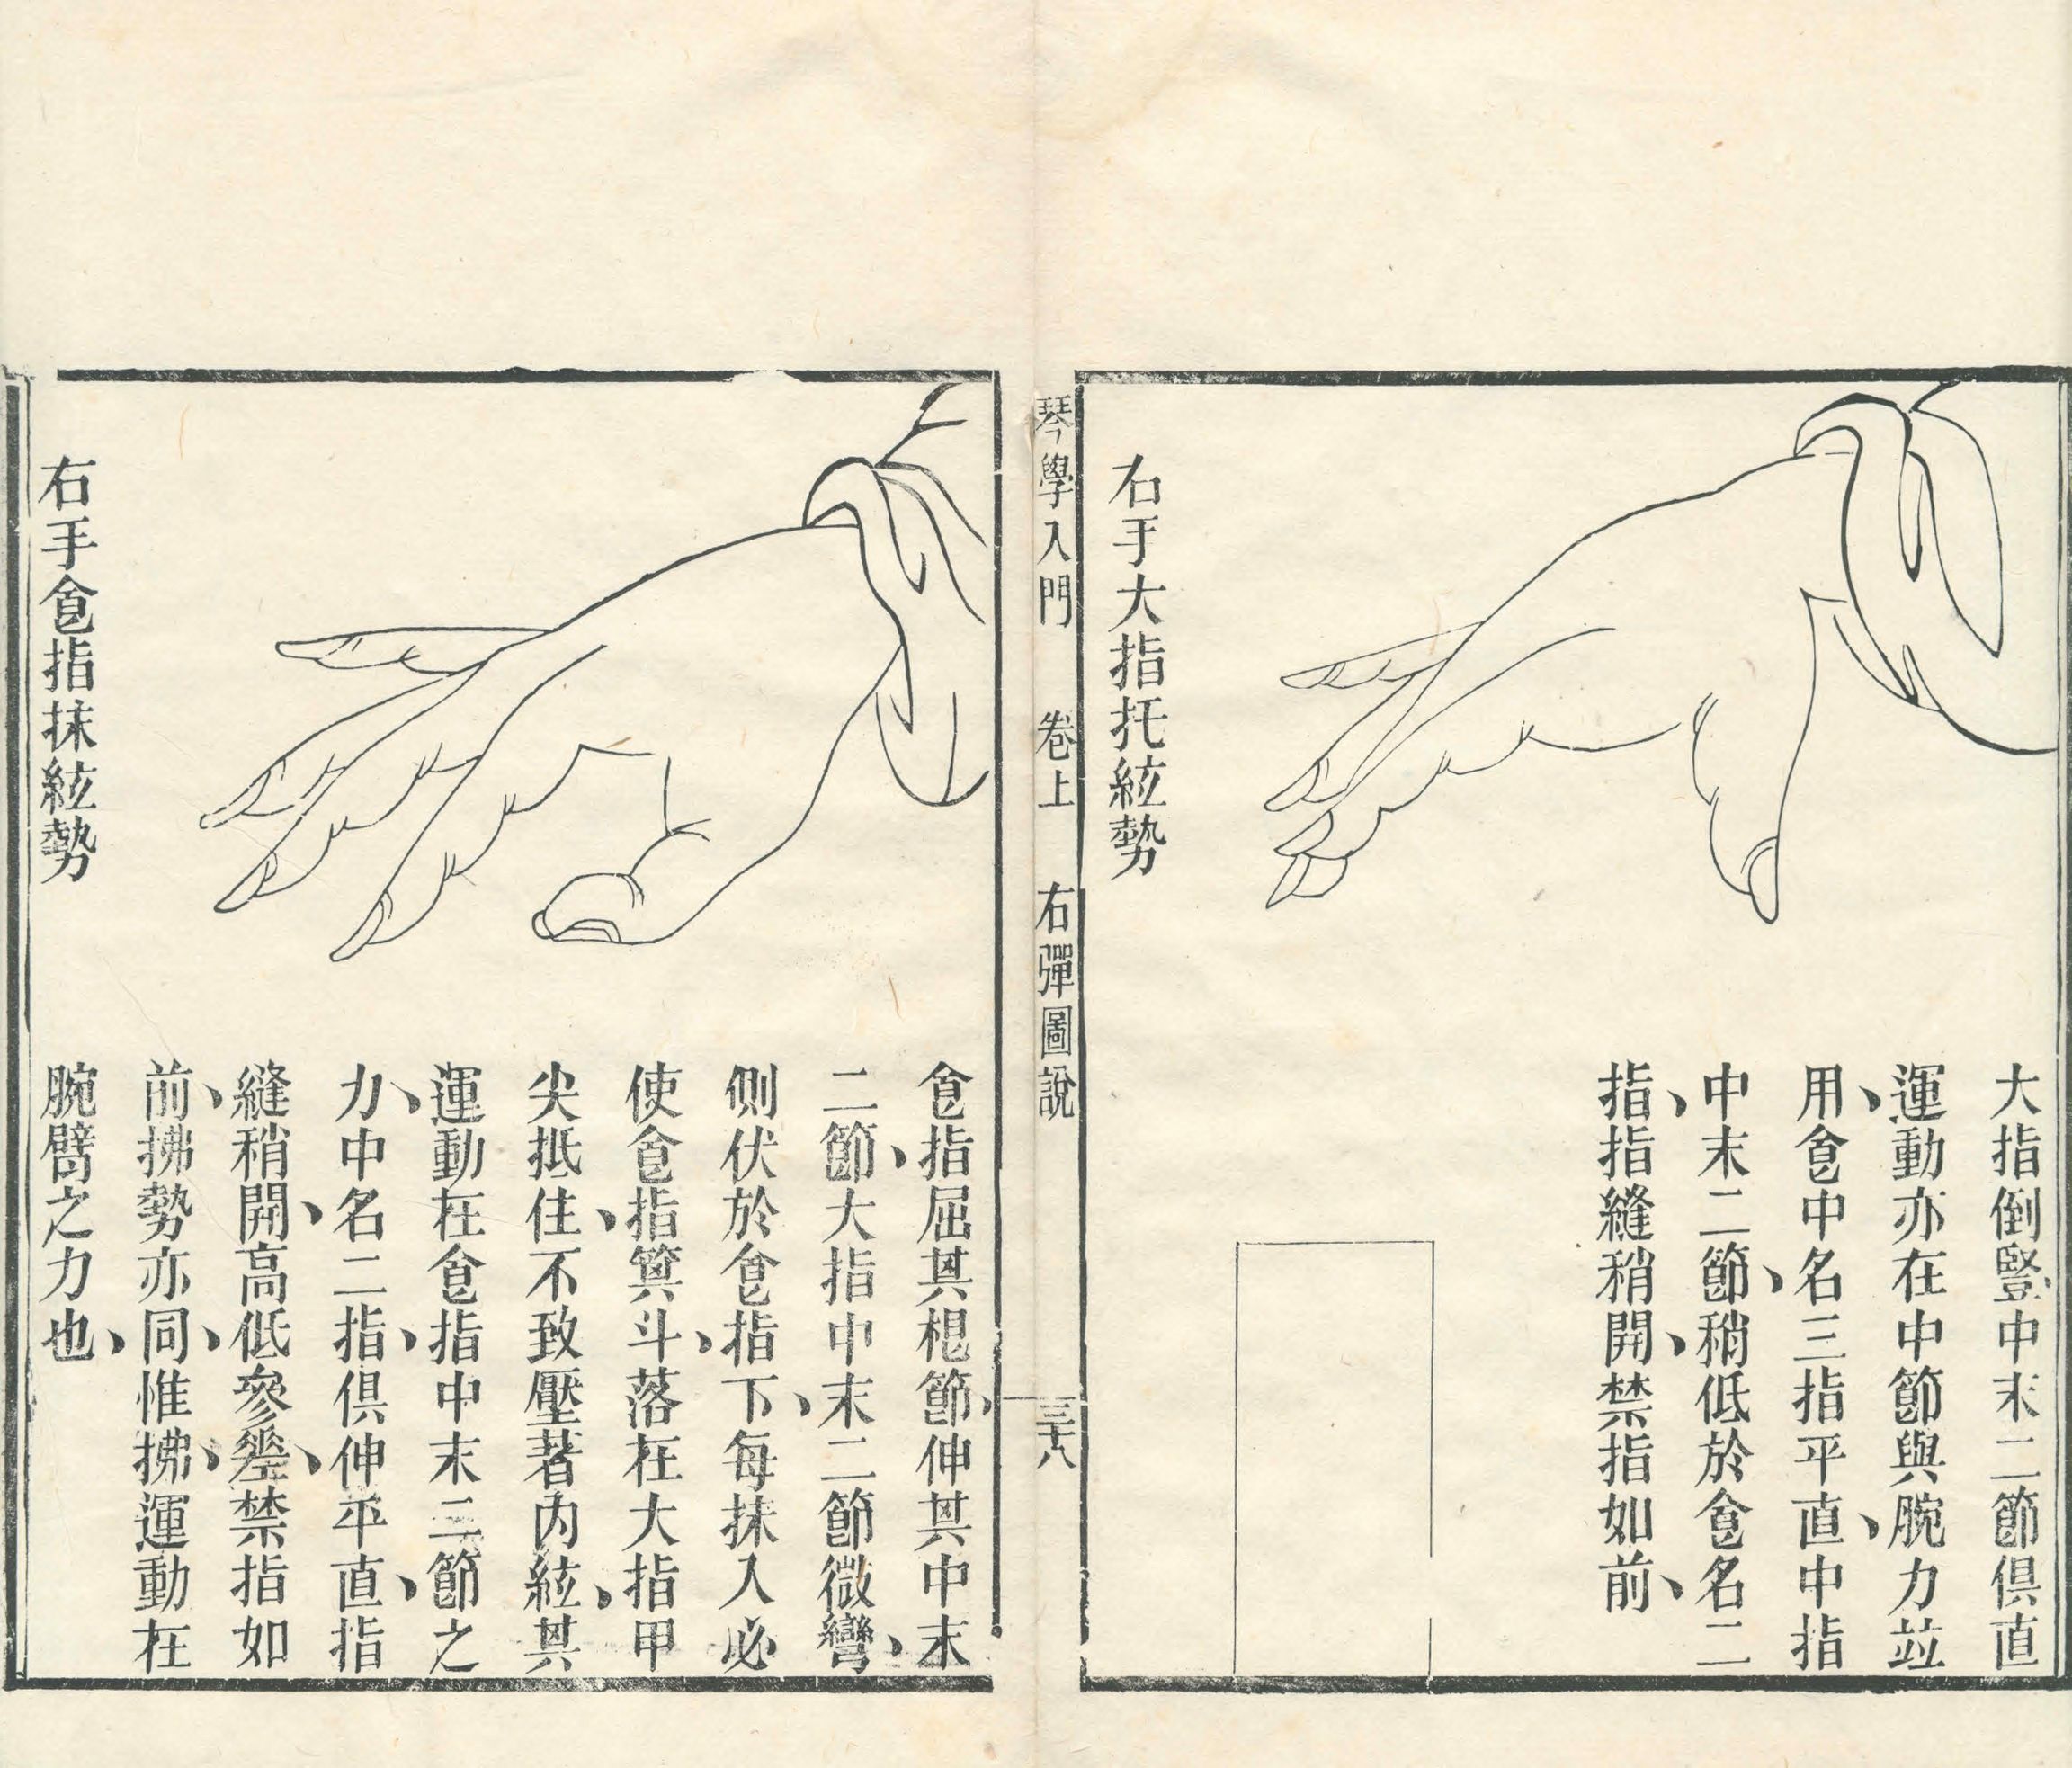 大指倒豎中末二節俱直
運動亦在中節與腕力竝
用食中名三指平直、中指
中末二節稍低於食名二
指、指縫稍開、禁指如前、
右手大指托絃勢
琴學入門 卷上 右彈圖說 三十八
食指屈其根節、伸其中末
二節、大指中末二節微彎、
側伏於食指下、每抹入必
使食指箕斗、落在大指甲
尖抵住、不致壓著內絃、其
運動在食指中末三節之
力、中名二指、俱伸平直、指
縫稍開、高低參差、禁指如
前、拂勢亦同、惟拂、運動在
腕臂之力也、
右手食指抹絃勢